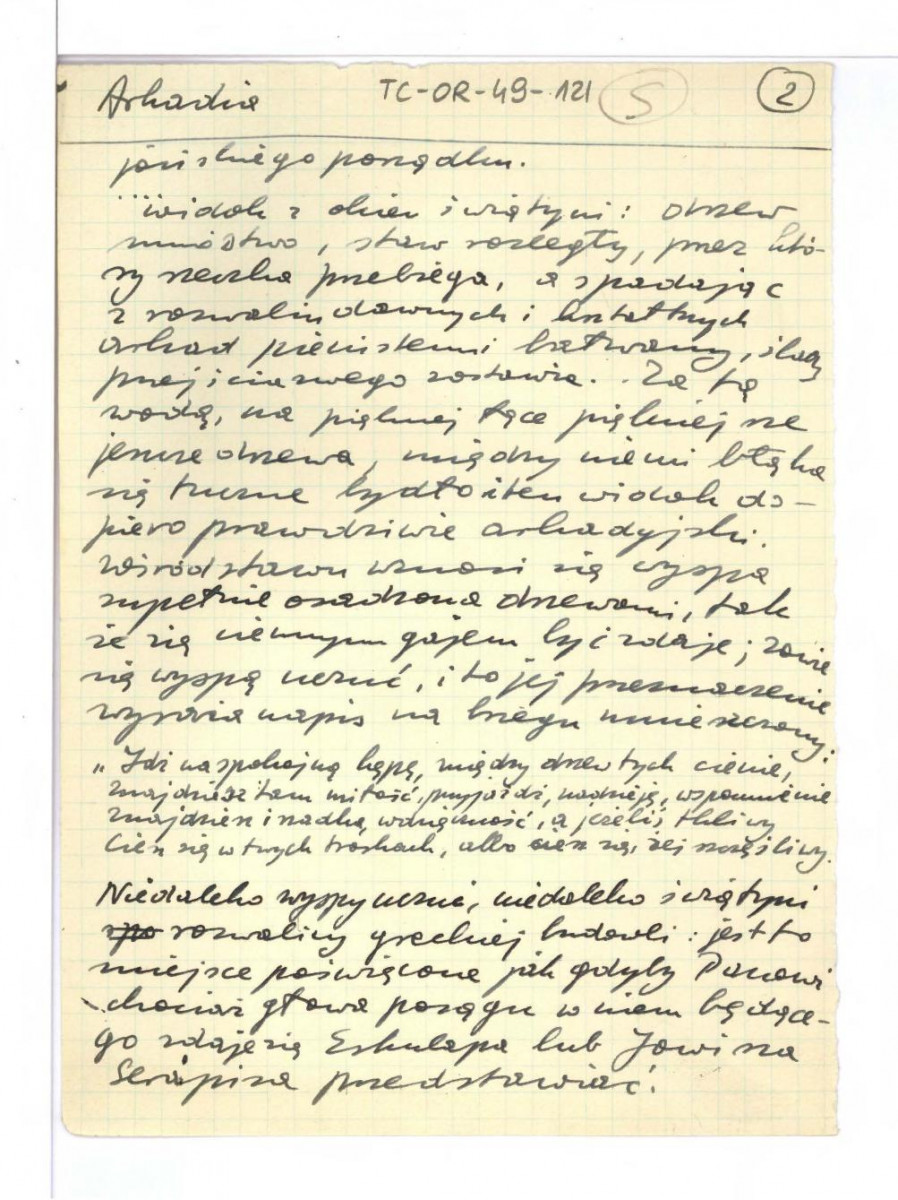 Arkadia TC-OR-49-121 S 2
jońskiego porządku.
...widok z okien świątyni: drzew
mnóstwo, staw rozległy, przez któ-
ry rzeczka przebiega, a spadając
z rozwalin dawnych i kształtnych
arkad pienistemi bałwany, ślady
przejścia swego zostawia. Za tą
wodą, na pięknej łące piękniejsze
jeszcze drzewa, między niemi błąka
się tuczne bydło i ten widok do-
piero prawdziwie arkadyjski.
Wśród stawu wznosi się wyspa
zupełnie osadzona drzewami, tak
że się ciemnym gajem być zdaje; zowie
się wyspą uczuć, i to jej przeznaczenie
wyraża napis na brzegu umieszczony:
„Idź na spokojną kępę, między drzew tych cienie,
znajdziesz tam miłość, przyjaźń, nadzieję, wspomnienie
znajdziesz i rzadką wdzięczność, a jeżeliś tkliwy
Ciesz się w twych troskach, albo ciesz się, żeś szczęśliwy.
Niedaleko wyspy uczuć, niedaleko świątyni
rozwaliny greckiej budowli: jest to
miejsce poświęcone jak gdyby Panowi
chociaż głowa posągu w niem będące-
go zdaje się Eskulapa lub Jowisza
Serapisa przedstawiać.